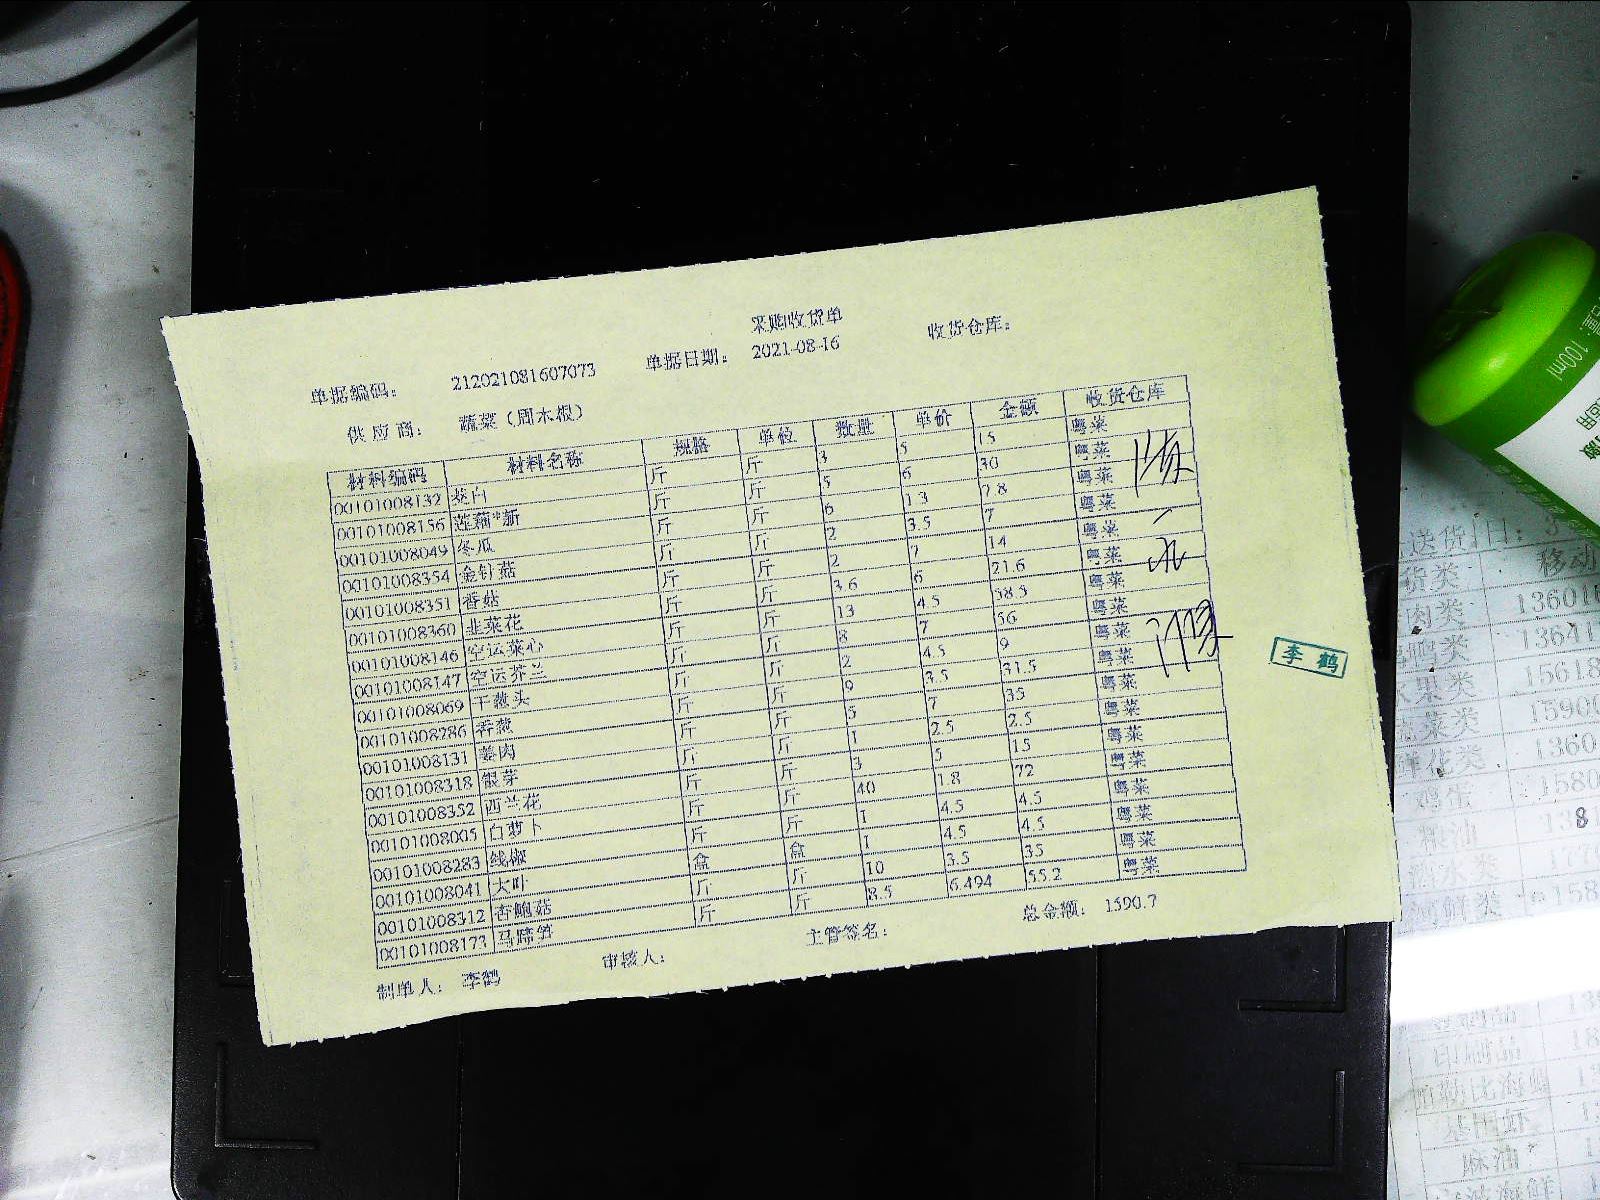 采购收货单
单据编码： 212021081607073 单据日期： 2021-08-16 收货仓库：
供应商： 蔬菜（周木根）
材料编码 材料名称 规格 单位 数量 单价 金额 收货仓库
00101008132 茭白 斤 斤 3 5 15 粤菜
00101008156 莲藕*新 斤 斤 5 6 30 粤菜
00101008049 冬瓜 斤 斤 6 1.3 7.8 粤菜
00101008354 金针菇 斤 斤 2 3.5 7 粤菜
00101008351 香菇 斤 斤 2 7 14 粤菜
00101008360 韭菜花 斤 斤 3.6 6 21.6 粤菜
00101008146 空运菜心 斤 斤 13 4.5 58.5 粤菜
00101008147 空运芥兰 斤 斤 8 7 56 粤菜
00101008069 干葱头 斤 斤 2 4.5 9 粤菜
00101008286 香葱 斤 斤 9 3.5 31.5 粤菜
00101008131 姜肉 斤 斤 5 7 35 粤菜
00101008318 银芽 斤 斤 1 2.5 2.5 粤菜
00101008352 西兰花 斤 斤 3 5 15 粤菜
00101008005 白萝卜 斤 斤 40 1.8 72 粤菜
00101008283 线椒 斤 斤 1 4.5 4.5 粤菜
00101008041 大叶 盒 盒 1 4.5 4.5 粤菜
00101008312 杏鲍菇 斤 斤 10 3.5 35 粤菜
00101008173 马蹄笋 斤 斤 8.5 6.494 55.2 粤菜
制单人： 李鹤 审核人： 主管签名： 总金额： 1590.7
李鹤
100ml
送货日：
货类 移动
肉类 13601
鸭类 13641
水果类 15618
菜类 1590
鲜花类 1360
鸡蛋 1580
粮油 138
海鲜类 158
印刷品 18
基围虾
麻油